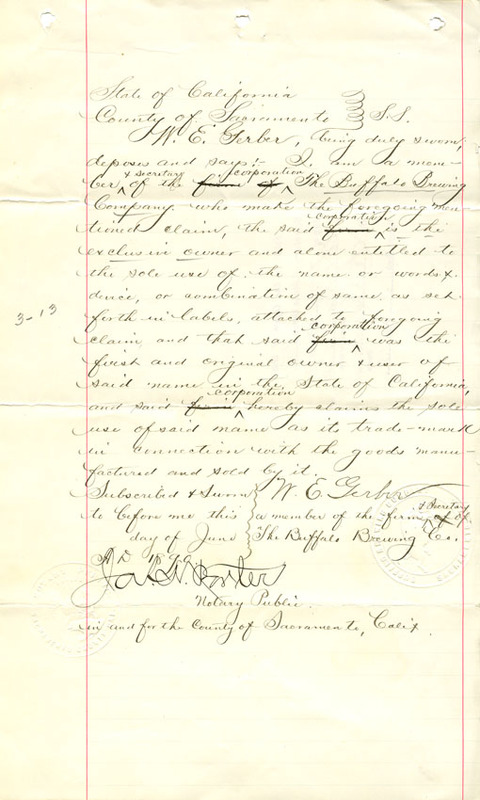 State of California
County of Sacramento S.S.
W. E. Gerber, being duly sworn,
deposes and says:- I, am a mem-
ber & secretary of the firm of corporation The Buffalo Brewing
Company who make the foregoing men-
tioned claim, the said firm corporation is the
exclusive owner and alone entitled to
the sole use of the name or words &
device, or combination of same as set
forth in labels, attached to foregoing
3-13
claim and that said firm corporation was the
first and original owner & user of
said name in the State of California,
and said firm corporation hereby claims the sole
use of said name as its trade-mark
in connection with the goods manu-
factured and sold by it.
Subscribed & Sworn W. E. Gerber
to before me this a member of the firm & Secretary of
day of June The Buffalo Brewing Co.
A.D. 189
Notary Public
in and for the County of Sacramento, Calif.